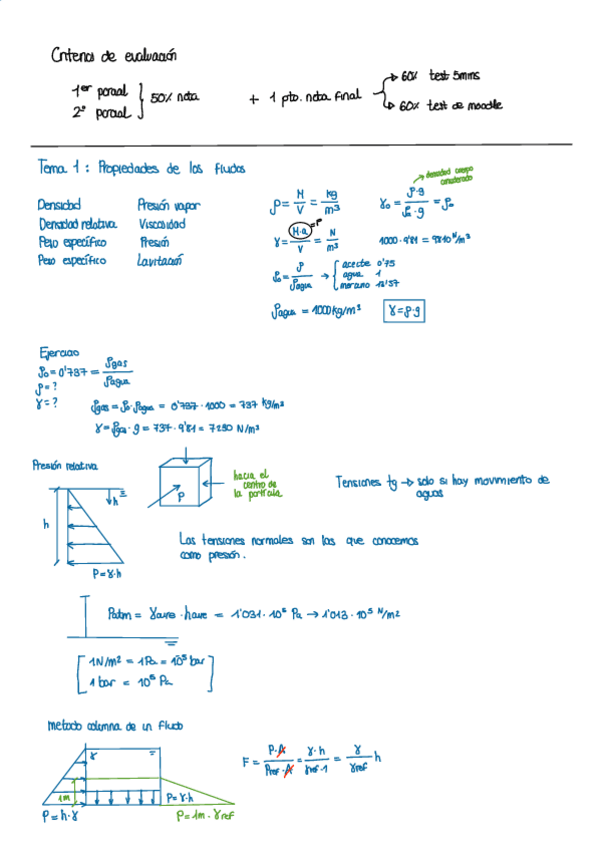 Criterios de evaluación
1er parcial
2º parcial
} 50% nota + 1 pto. nota final
60% test 5mins
60% test de moodle
Tema 1: Propiedades de los fluidos
Densidad Presión vapor
Densidad relativa Viscosidad
Peso específico Presión
Peso específico Lavitación
ρ = M/V = kg/m³
densidad cuerpo considerado
γ₀ = ρ·g / ρₐ·g = ρ₀
γ = M·a / V = N/m³
=P
1000·9'81 = 9810 N/m³
ρ₀ = ρ / ρagua → { aceite 0'75
agua 1
mercurio 13'57
ρagua = 1000 kg/m³ γ = ρ·g
Ejercicio
ρ₀ = 0'737 = ρgas / ρagua
ρ = ?
γ = ?
ρgas = ρ₀·ρagua = 0'737 · 1000 = 737 kg/m³
γ = ρgas · g = 737 · 9'81 = 7230 N/m³
Presión relativa
h
h
P = γ·h
P
hacia el
centro de
la partícula
Tensiones tg → solo si hay movimiento de
aguas
Las tensiones normales son las que conocemos
como presión.
Patm = γaire · haire = 1'031 · 10⁵ Pa → 1'013 · 10⁵ N/m²
1N/m² = 1Pa = 10⁵ bar
1 bar = 10⁵ Pa
metodo columna de un fluido
γ
1m
P = γ·h
P = h·γ
P = 1m · γref
F = P·A / Pref·A = γ·h / γref·1 = γ / γref h